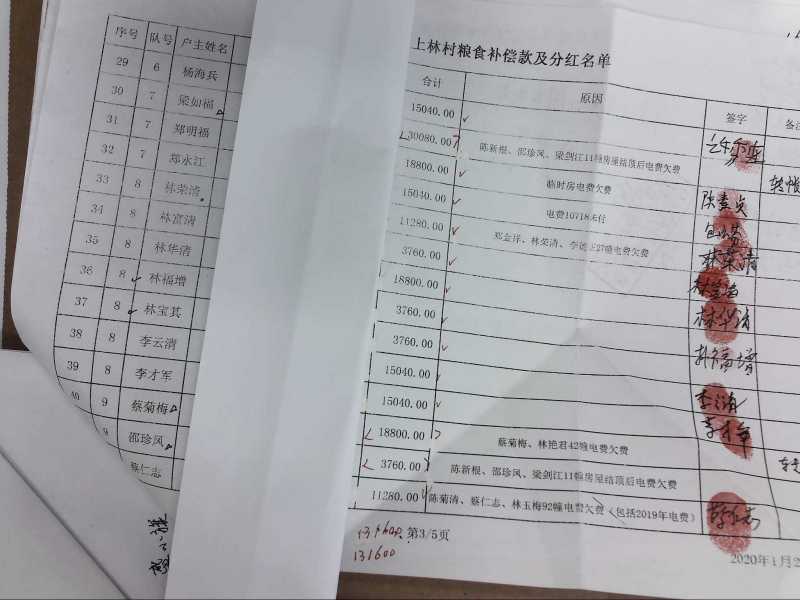 序号 队号 户主姓名
29 6 杨海兵
30 7 梁如福
31 7 郑明福
32 7 郑永江
33 8 林荣清
34 8 林富清
35 8 林华清
36 8 林福增
37 8 林宝其
38 8 李云清
39 8 李才军
40 9 蔡菊梅
9 邵珍凤
蔡仁志
上林村粮食补偿款及分红名单
合计 原因 签字 备注
15040.00
30080.00 陈新根、邵珍凤、梁剑江11幢房屋结顶后电费欠费
18800.00 临时房电费欠费 转帐
15040.00 电费10718未付
11280.00 郑金洋、林荣清、李 27幢电费欠费 林荣清
3760.00
18800.00 林华清
3760.00 林福增
3760.00
15040.00
15040.00 李才军
18800.00 蔡菊梅、林艳君42幢电费欠费
3760.00 陈新根、邵珍凤、梁剑江11幢房屋结顶后电费欠费
11280.00 陈菊清、蔡仁志、林玉梅92幢电费欠费（包括2019年电费） 蔡仁志
第3/5页
131600
2020年1月2